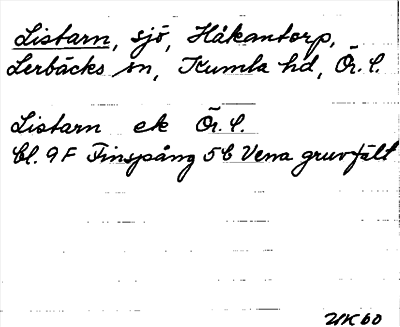 Listarn, sjö, Håkantorp,
Lerbäcks sn, Kumla hd, Ör. l.
Listarn ek Ör. l.
bl. 9F Finspång 5b Vena gruvfält
UK60